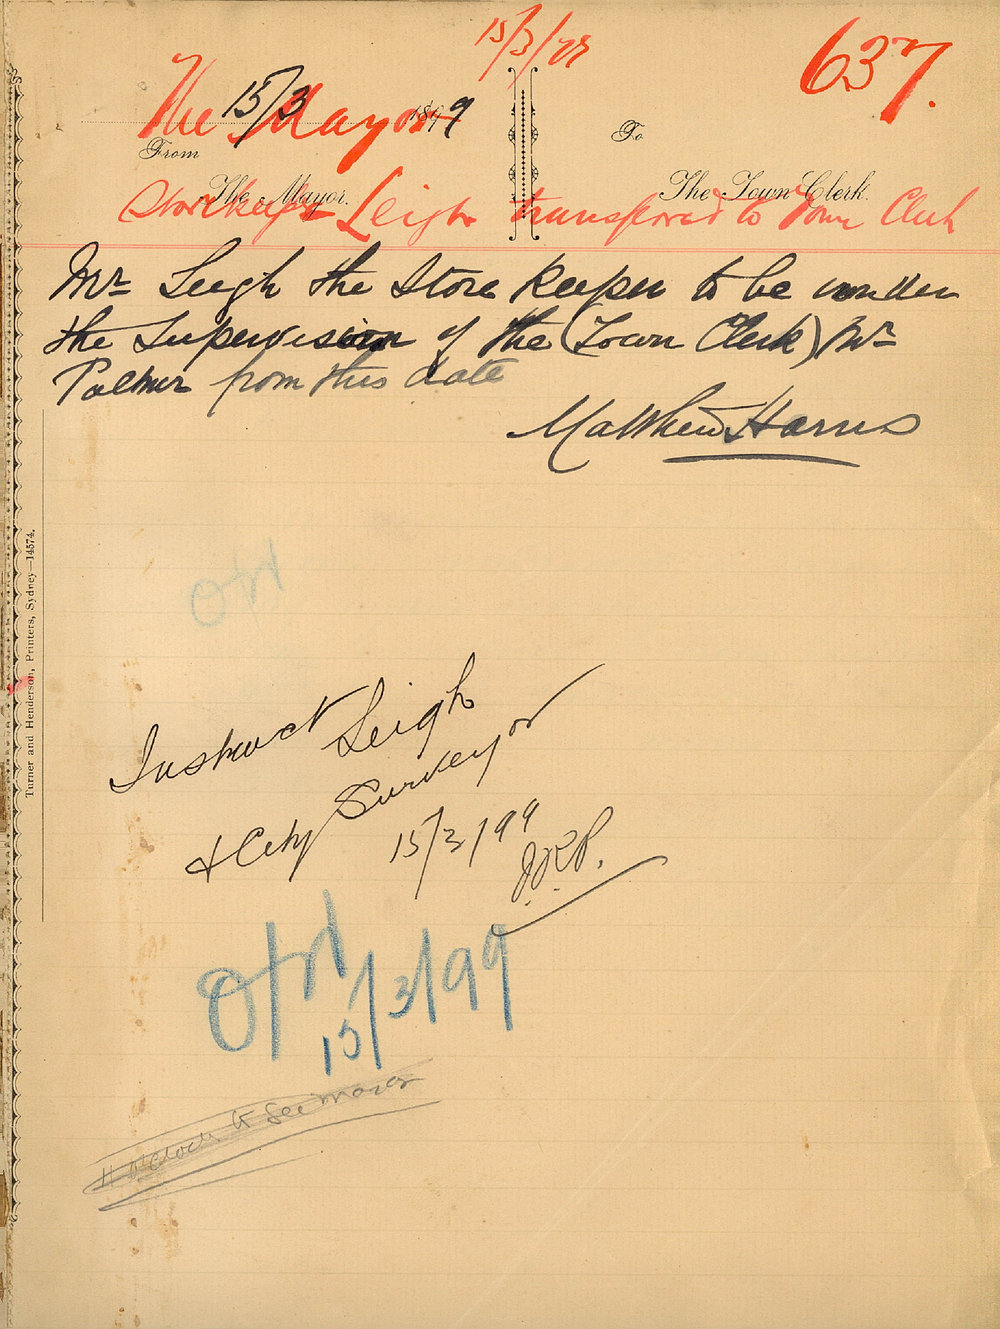 15/3/99
637.
The Mayor
15/3 1899
From
To
The Mayor.
The Town Clerk.
Storekeeper Leigh transferred to Town Clerk
Mr Leigh the Store Keeper to be under
the Supervision of the (Town Clerk) Mr
Palmer from this date
Matthew Harris
Instruct Leigh
& City Surveyor
15/3/99
J.R.P.
15/3/99
to See Mayor
Turner and Henderson, Printers, Sydney—14574.